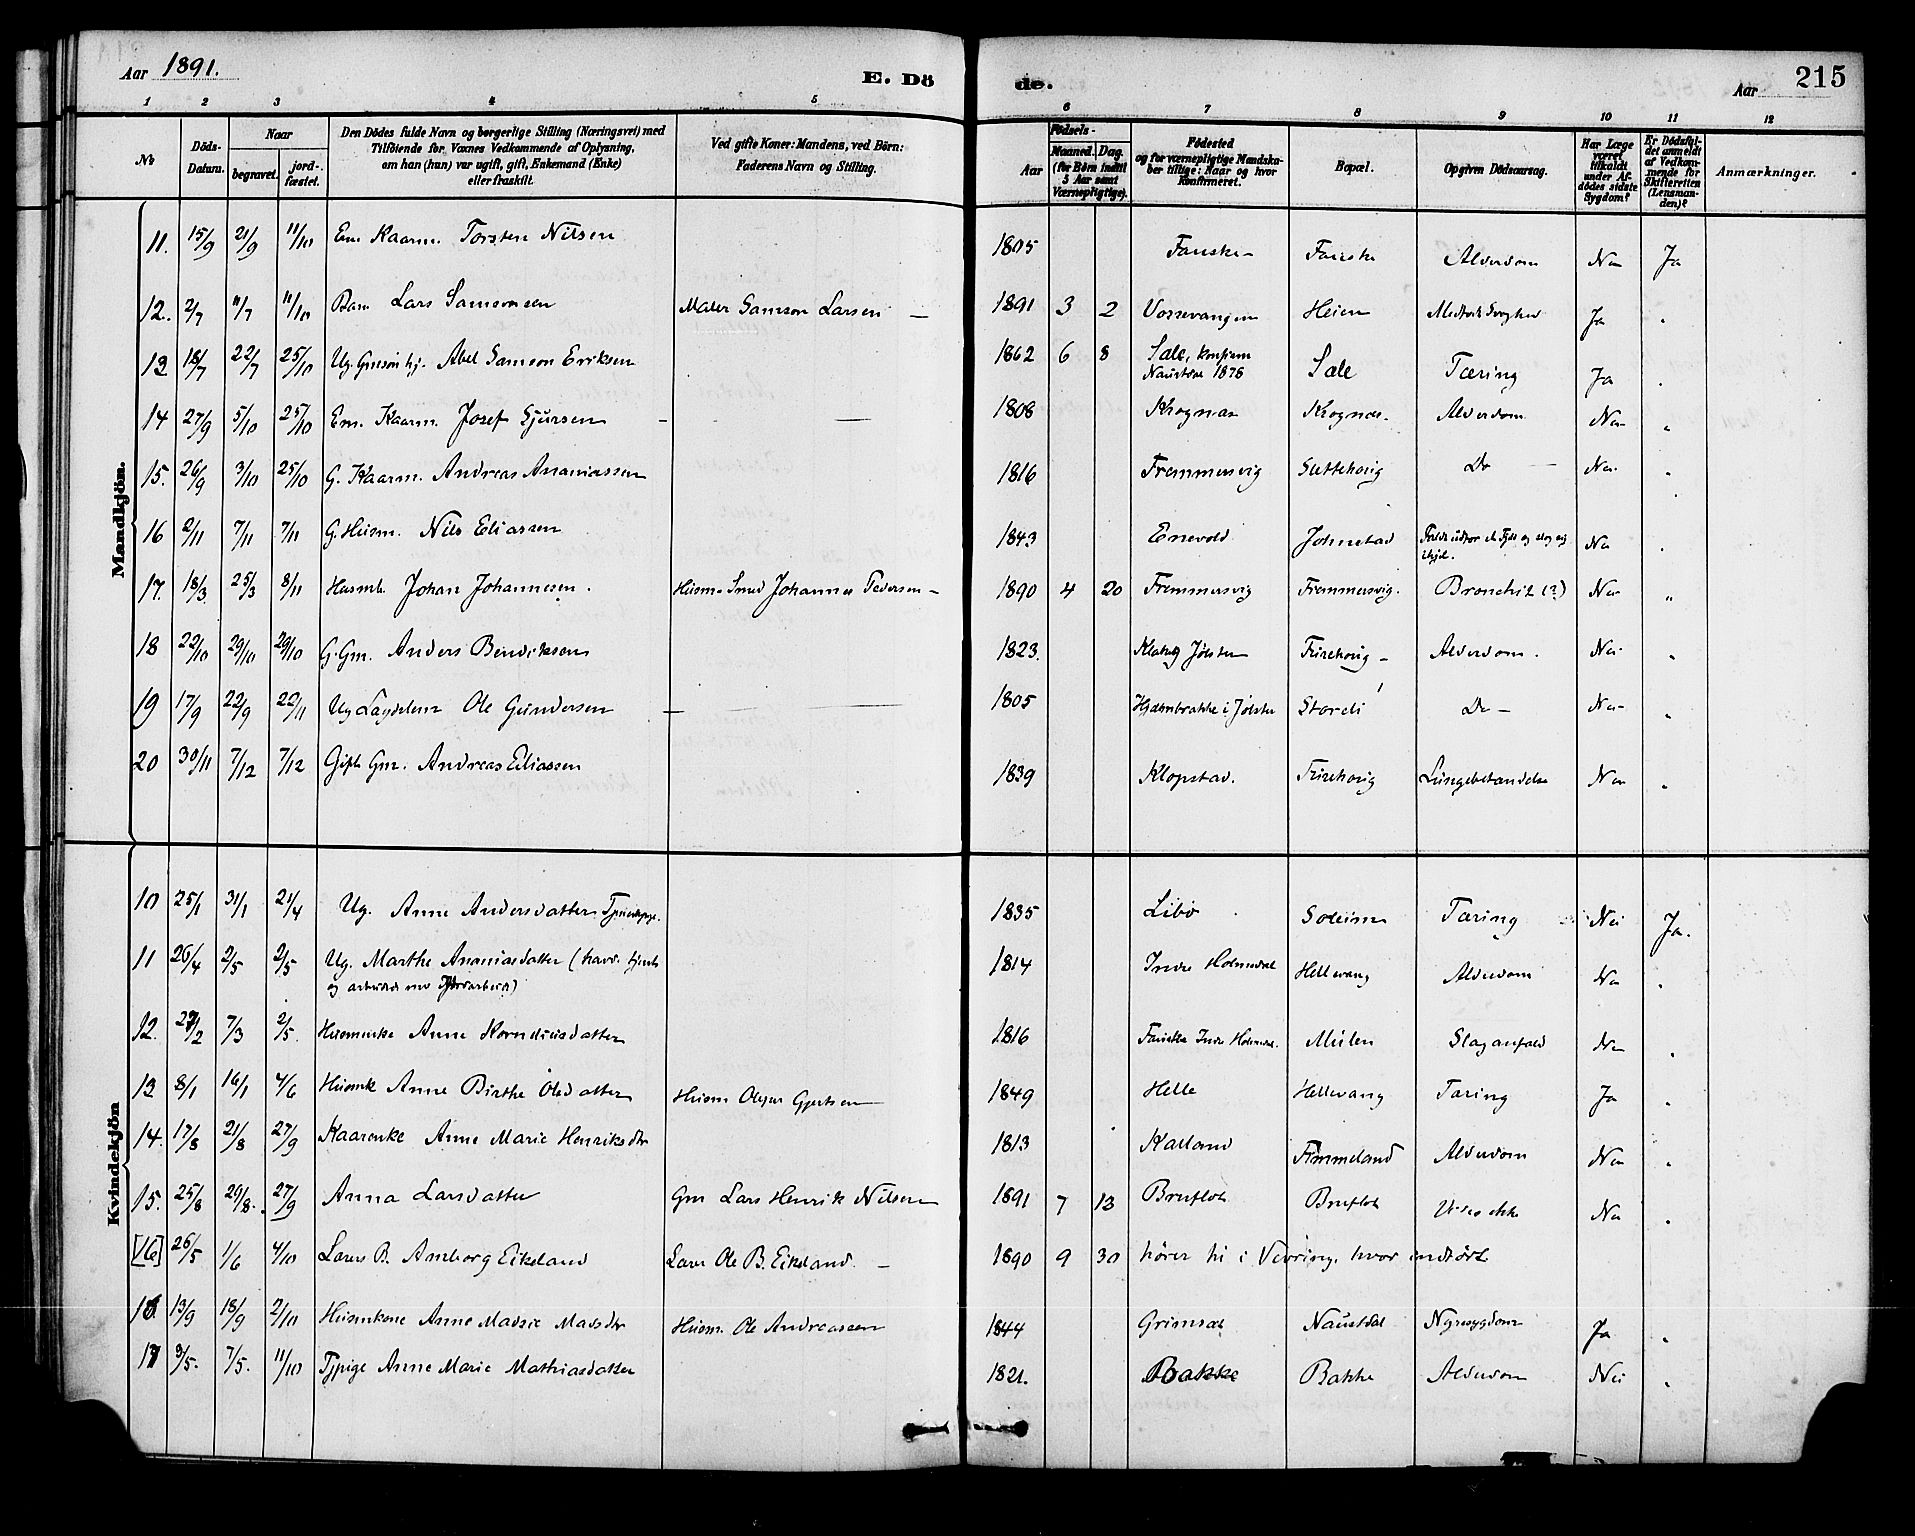 Aar 1891. E. Dö de. Aar 215
1 2 3 4 5 6 7 8 9 10 11 12
No Döds-Datum. Naar begravet. jordfæstet. Den Dödes fulde Navn og borgerlige Stilling (Næringsvei) med Tilföiende for Voxnes Vedkommende af Oplysning, om han (hun) var ugift, gift, Enkemand (Enke) eller fraskilt. Ved gifte Koner: Mandens, ved Börn: Faderens Navn og Stilling. Födsels- Aar Maaned. Dag. (for Börn indtil 5 Aar samt Værnepligtige). Födested og for værnepligtige Mandskaber tillige: Naar og hvor Konfirmeret. Bopæl. Opgiven Dödsaarsag. Har Læge været tilkaldt under Afdödes sidste Sygdom? Er Dödsfaldet anmeldt af Vedkommende for Skifteretten (Lensmanden)? Anmærkninger.
Mandkjön.
11. 15/9 21/9 11/10 Em Kaarm. Torsten Nilsen 1805 Fauske Fauske Alderdom Nei Ja
12. 2/7 11/7 11/10 Barn Lars Samsonsen Maler Samson Larsen 1891 3 2 Vossevangen Heien Medfødt Svaghed Ja "
13 18/7 22/7 25/10 Ug. Gmsøn Abel Samson Eriksen 1862 6 8 Sale, konfirm Naustdal 1876 Sale Tæring Ja "
14 27/9 5/10 25/10 Em. Kaarm. Josef Sjursen 1808 Krognæs Krognæs. Alderdom Nei "
15. 26/9 3/10 25/10 G. Kaarm. Andreas Ananiassen 1816 Fremmersvig Do Nei "
16 2/11 7/11 7/11 G. Husm. Nils Eliassen 1843 Enevold Johnstad Faldt udfor et Fjeld og slog sig ihjel. Nei "
17. 18/3. 25/3 8/11 Husmb. Johan Johannesen. Husm. Smed Johannes Pedersen 1890 4 20 Fremmersvig Fremmersvig. Bronchit (?) Nei "
18 22/10 29/10 29/10 G. Gm. Anders Bendiksen 1823. Jølster Furehovig Alderdom. Nei "
19 17/9 22/9 22/11 Ug Lægdslem Ole Gundersen 1805 i Jølster Stordi Do Nei "
20 30/11 7/12 7/12 Gift Gm. Andreas Eliassen 1839 Klopstad. Furehovig Lungebetændelse Nei "
Kvindekjön
10 25/1 31/1 21/4 Ug. Anne Andersdatter Tjenestepige. 1835 Libø Soleim Tæring Nei Ja.
11 26/4 2/5 2/5 Ug. Marthe Ananiasdatter (havde tjent
og arbeidede med) 1814 Indre Holmedal Hellevang Alderdom Nei "
12. 27/2 7/3 2/5. Husmenke Anne Korneliusdatter 1816 Fauske Indre Holmedal. Mulen Slaganfald Nei "
13 8/1 16/1 4/6 Husmk Anne Birthe Olsdatter Husm Gjertsen 1849 Helle Hellevang Tæring Ja "
14. 17/8 21/8 27/9 Kaarenke Anne Marie Henriksdtr 1813 Kalland Fimmeland Alderdom Nei "
15. 25/8 29/8. 27/9 Anna Larsdatter Gm Lars Henrik Nilsen 1891 7 13 Bruflot Bruflot Vides ikke Nei "
[16] 26/5 1/6 4/10 Lærer B. Amborg Eikeland Lærer Ole B. Eikeland. 1890 9 30 hører til i Vevring, hvor indført
16. 13/9 18/9 2/10 Husmkone Anne Madsdtr Husm. Ole Andreassen 1844 Grimsæt Naustdal Nyresygdom Ja "
17 3/5. 7/5. 11/10 Tjpige Anne Marie Mathiasdatter 1821. Bakke Bakke Alderdom Nei "